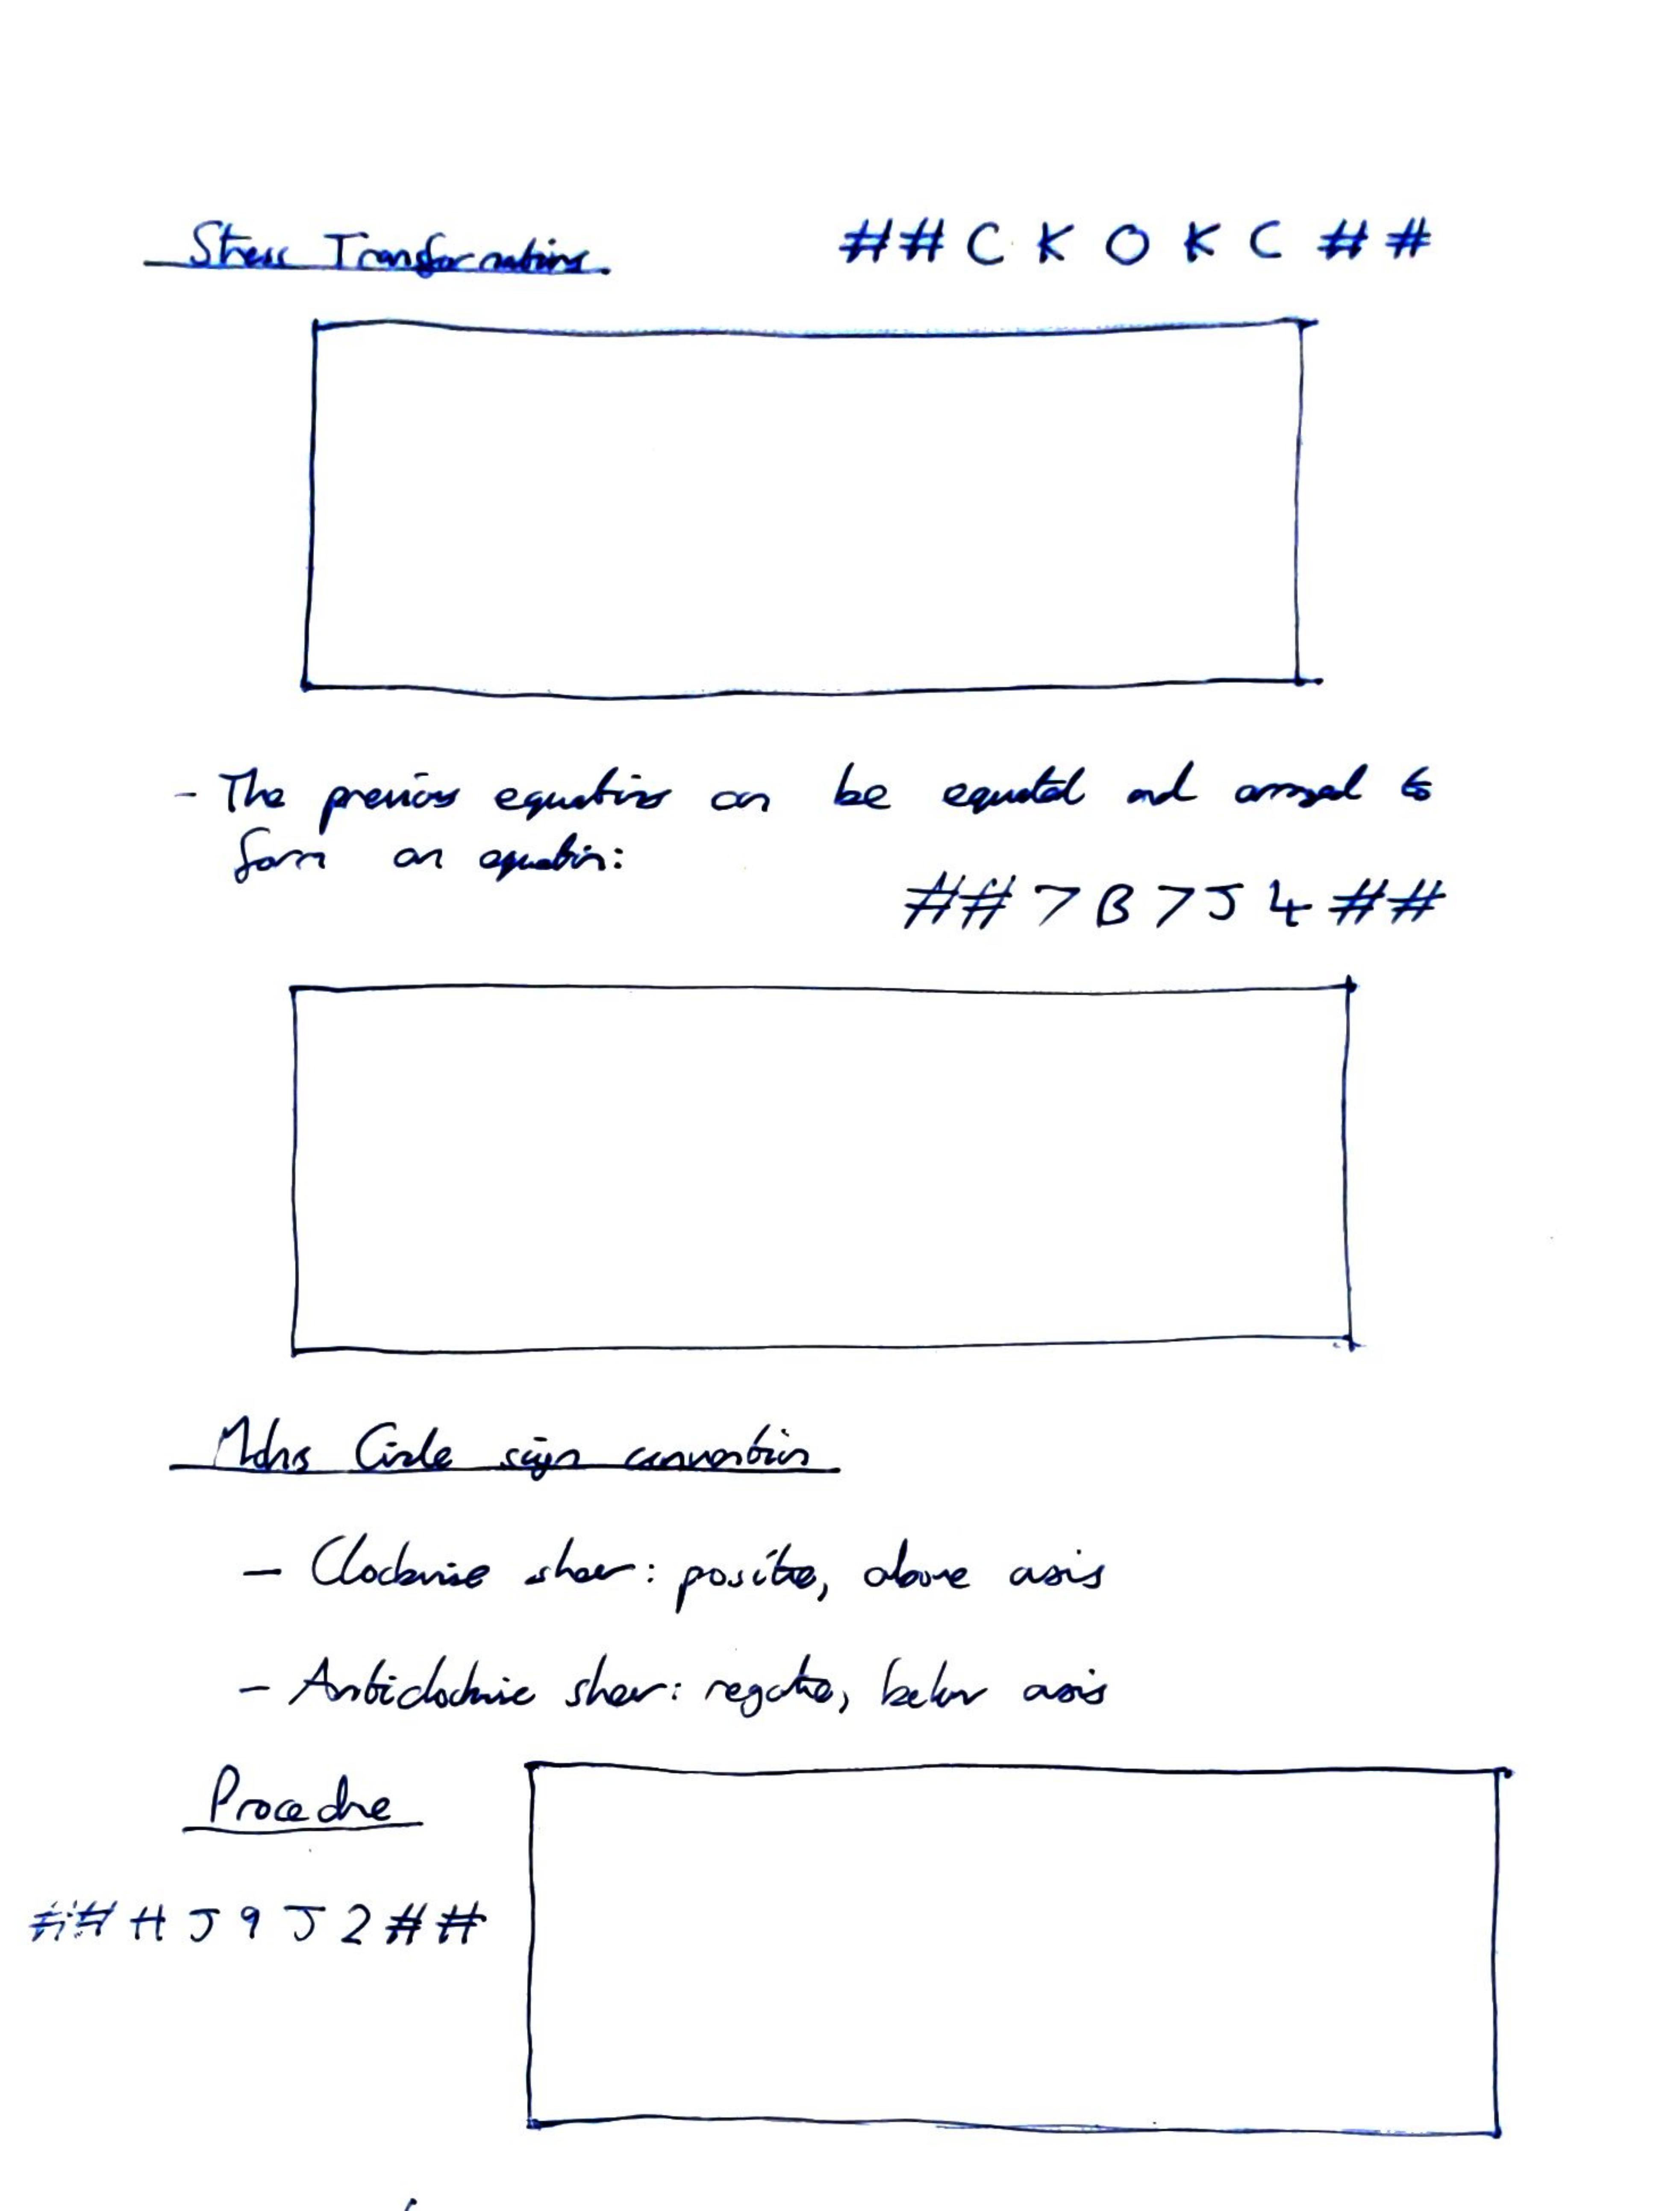 Stress Transformations
##CKOKC##
- The previous equations can be equated and arranged to
form an equation:
##7B7J4##
Mohrs Circle sign convention
- Clockwise shear: positive, above axis
- Anticlockwise shear: negative, below axis
Procedure
##HJ9J2##